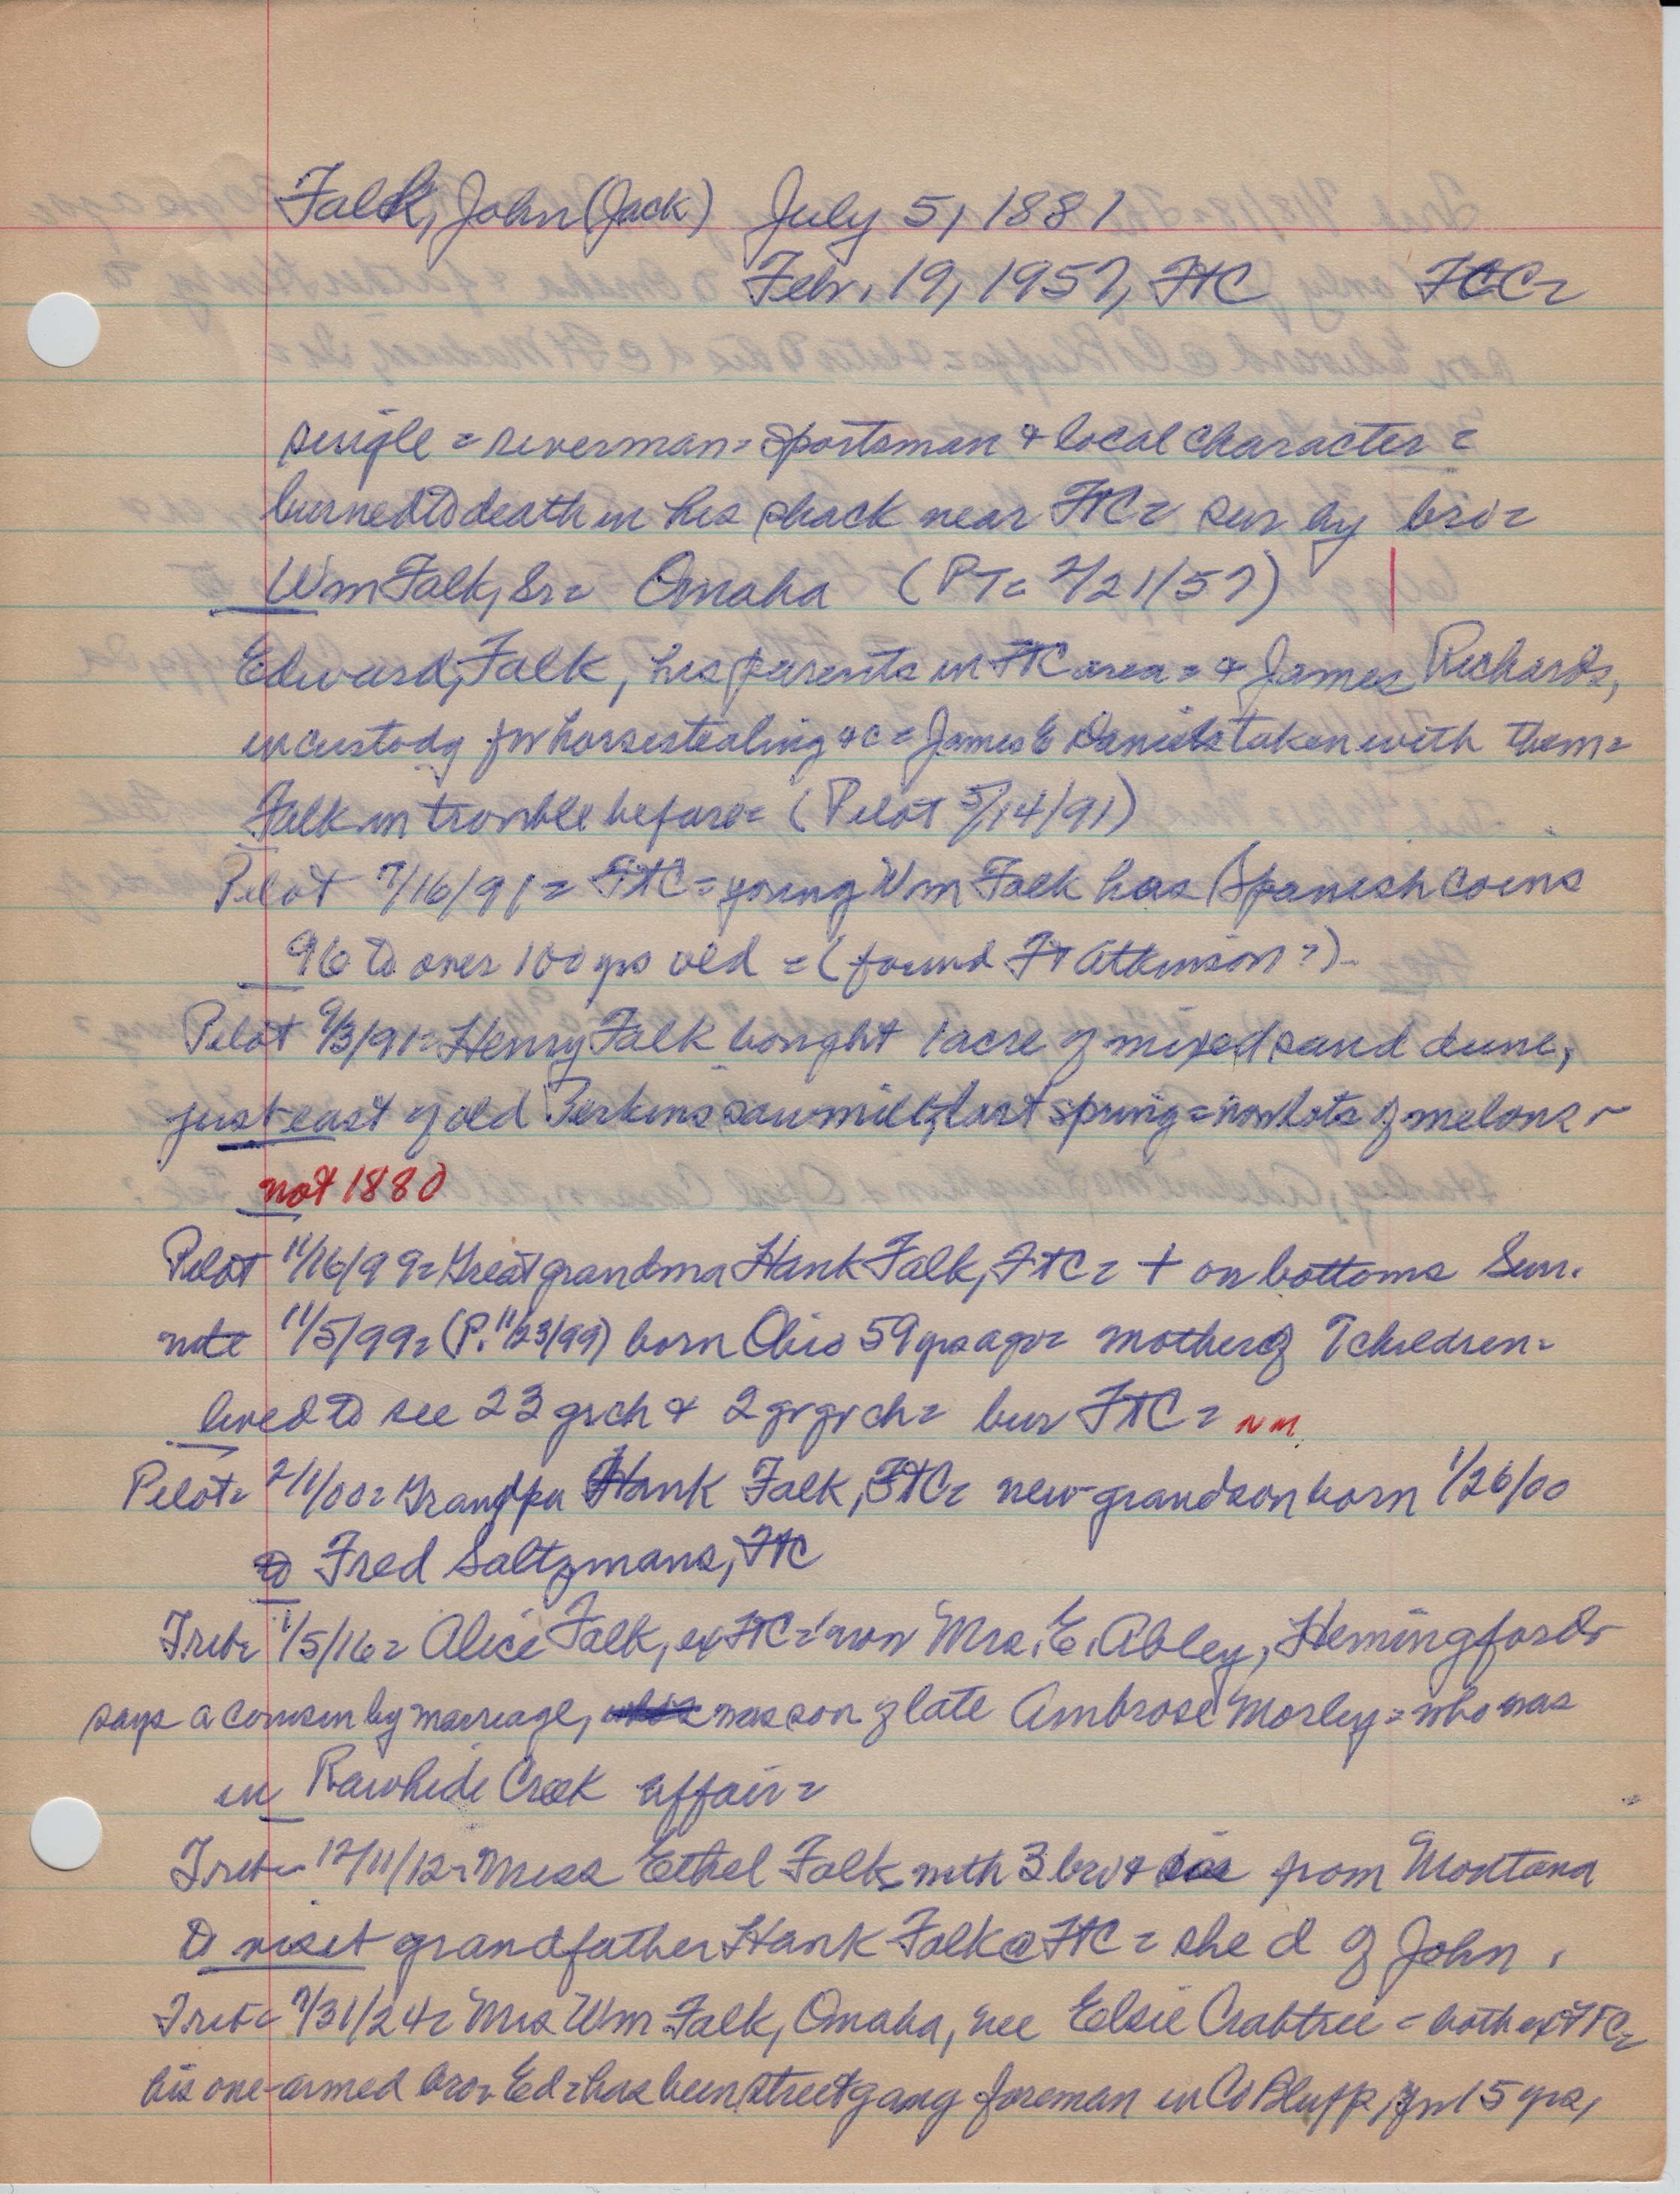 Falk, John (Jack) July 5, 1881
Febr. 19, 1957, FtC FtC=
single = riverman = sportsman & local character =
burned to death in his shack near FtC = sur by bro =
Wm Falk, Sr = Omaha (PT = 2/21/57)
Edward Falk, his parents in FtC area = & James Richards,
in custody for horsestealing &c = James E Daniels taken with them =
Falk in trouble before = (Pilot 5/14/91)
Pilot 7/16/91 = FtC = young Wm Falk has Spanish coins
96 to over 100 yrs old = (found Ft Atkinson?)
Pilot 9/3/91 = Henry Falk bought 1 acre of mixed sand dune,
just east of old Perkins sawmill, last spring = now lots of melons -
not 1880
Pilot 11/16/99 = Great grandma Hank Falk, FtC = + on bottoms Sun.
note 11/5/99 = (P. 11/23/99) born Ohio 59 yrs ago = mother of 7 children =
lived to see 23 grch & 2 grgrch = bur FtC = nm
Pilot = 2/1/00 = Grandpa Hank Falk, FtC = new grandson born 1/26/00
to Fred Saltzmans, FtC
Trib = 1/5/16 = Alice Falk, ex FtC = now Mrs. E. Abley, Hemingford -
says a cousin by marriage, was son of late Ambrose Morley = who was
in Rawhide Creek affair =
Trib = 12/11/12 = Miss Ethel Falk with 3 bro & sis from Montana
to visit grandfather Hank Falk @ FtC = she d of John.
Trib = 7/31/24 = Mrs Wm Falk, Omaha, nee Elsie Crabtree = both ex FtC =
his one-armed bro = Ed = has been street gang foreman in Co Bluffs, for 15 yrs,